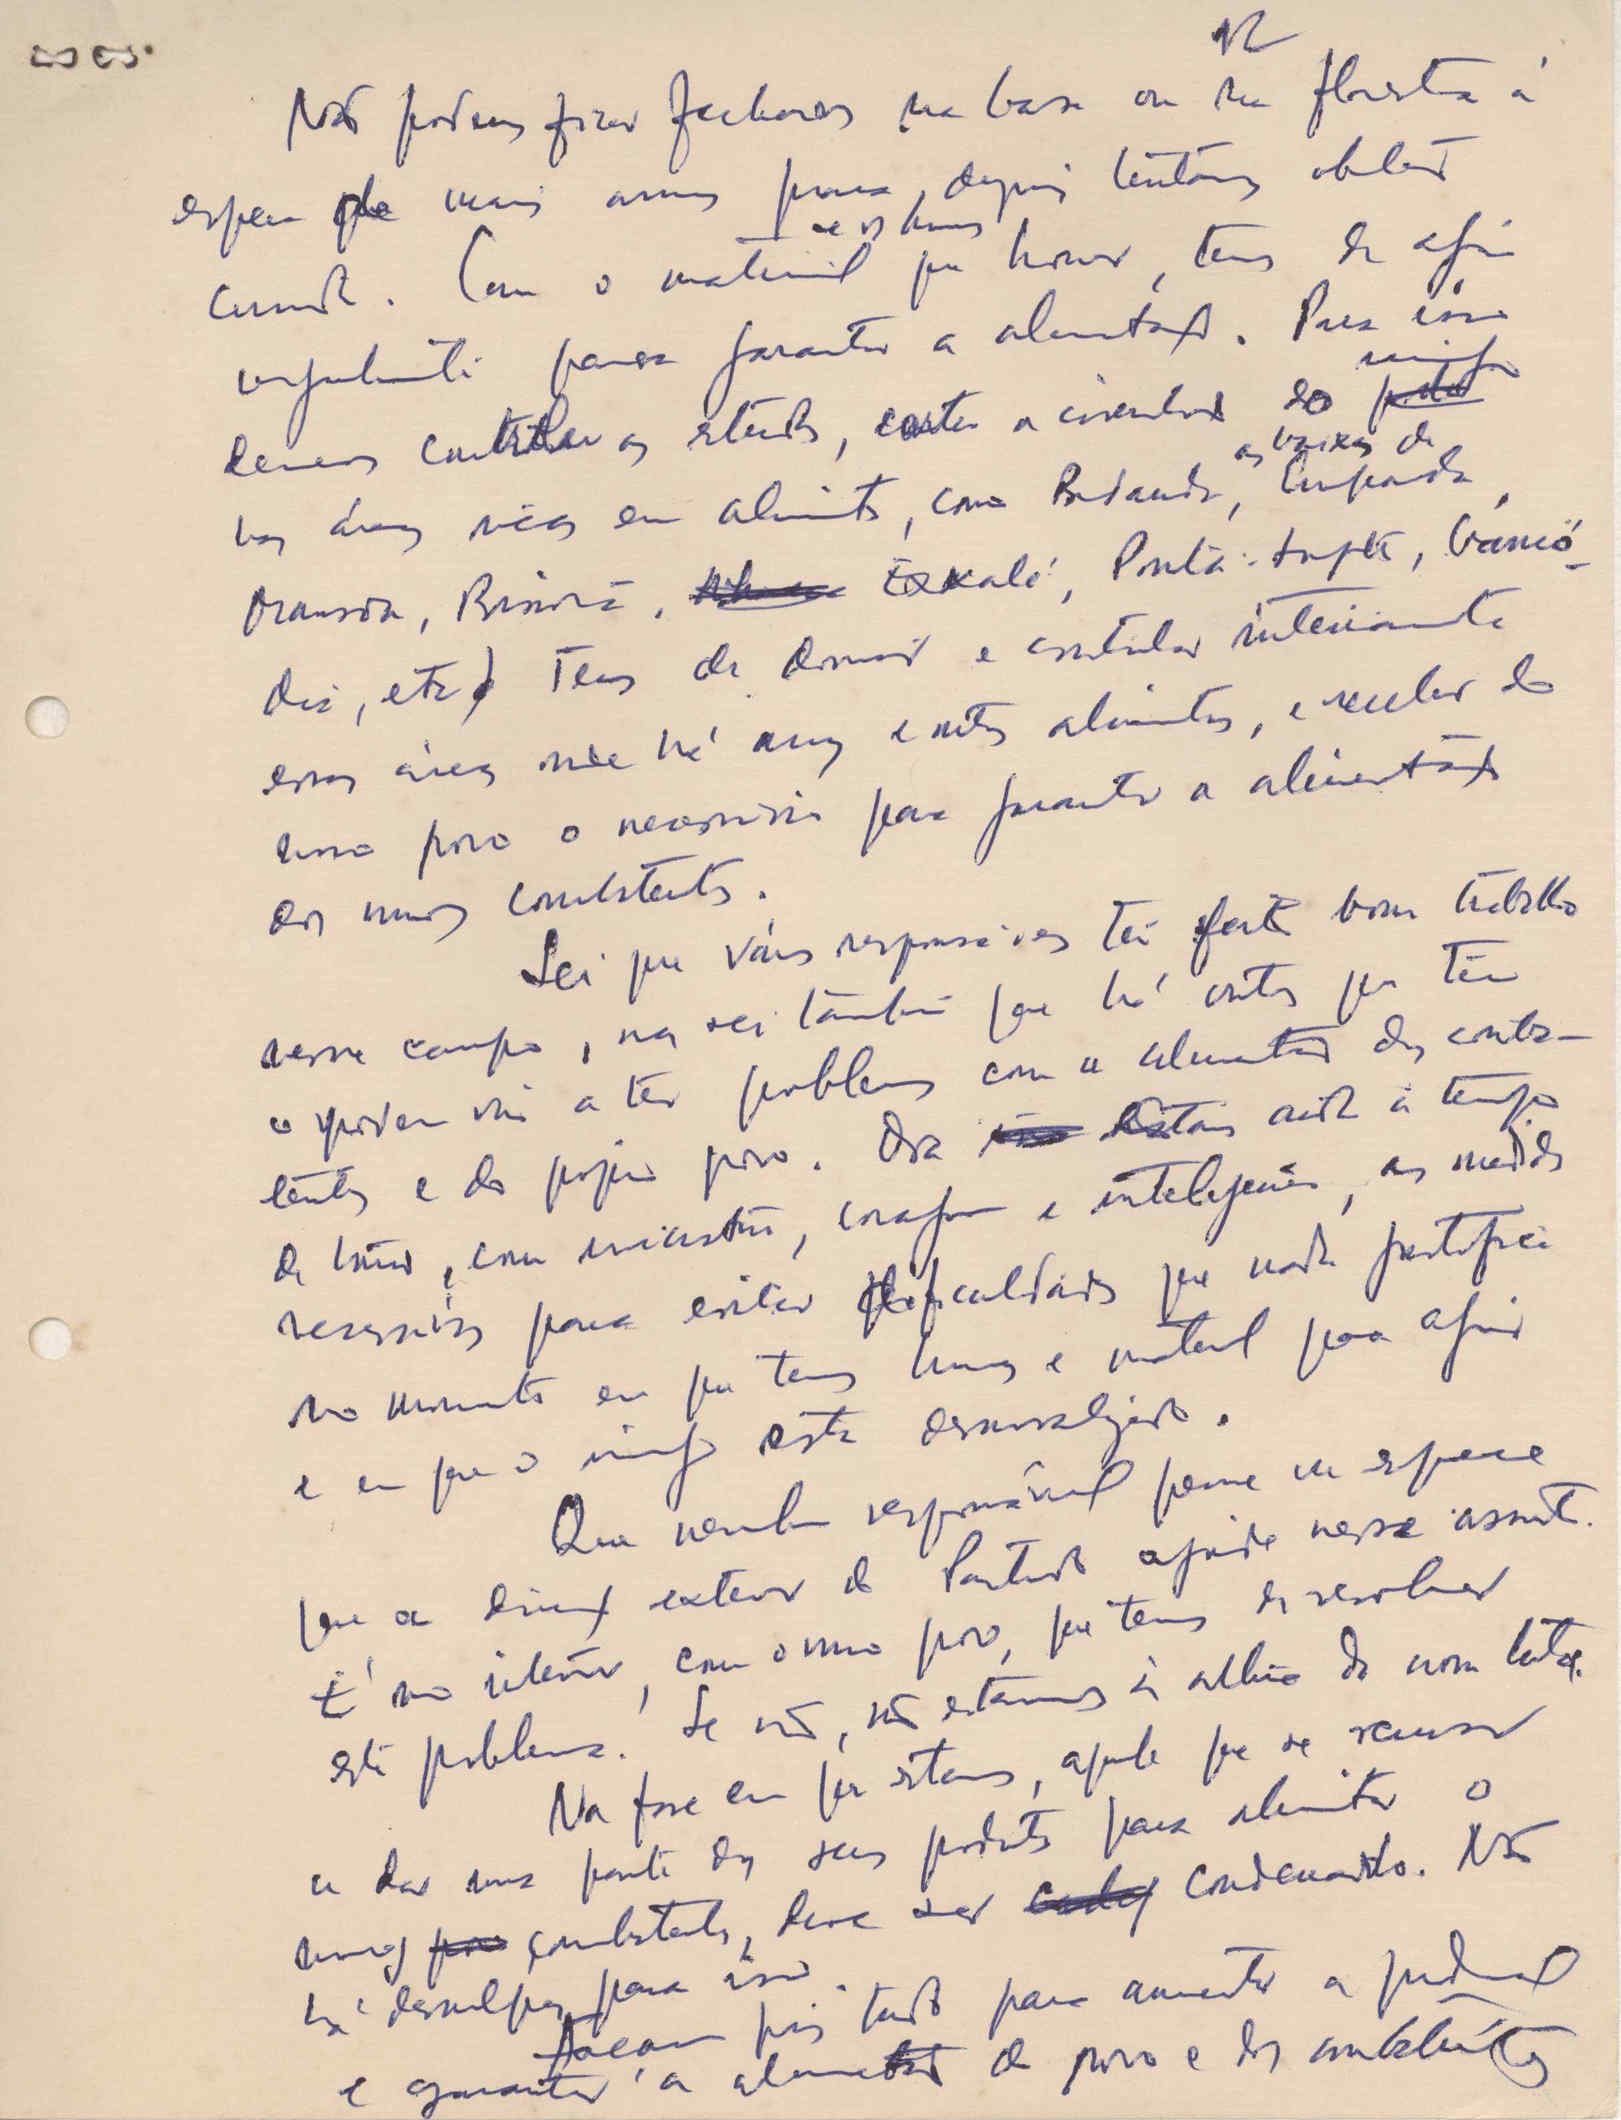 12
Não podemos ficar fechados na base ou na floresta à
espera de mais arroz para, depois tentarmos obter
comida. Com o material e os homens que houver, temos de agir
para garantir a alimentação. Para isso
devemos controlar as estradas, cortar a circulação do inimigo
nas áreas ricas em alimentos, como Badanda, as baixas de Empada,
Mansoa, Bissorã, Enxalé, Ponta
etc. Temos de dominar e controlar inteiramente
essas áreas onde há arroz e outros alimentos, e receber do
nosso povo o necessário para garantir a alimentação
dos nossos combatentes.
Sei que vários responsáveis têm feito bom trabalho
nesse campo, mas sei também que há outros que têm
ou podem vir a ter problemas com a alimentação dos comba-
tentes e do próprio povo. Ora estamos ainda a tempo
de tomar, com iniciativa, coragem e inteligência, as medidas
necessárias para evitar dificuldades que nada justifica
no momento em que temos homens e material para agir
e em que o inimigo está desmoralizado.
Que nenhum responsável pense ou espere
que a direcção exterior do Partido ajude nesse assunto.
É no interior, com o nosso povo, que temos de resolver
este problema. Se não, não estamos à altura da nossa luta.
Na fase em que estamos, aquele que se recusar
a dar uma parte dos seus produtos para alimentar os
nossos combatentes, deve ser condenado. Não
há desculpas para isso.
Façam pois tudo para aumentar a produção
e garantir a alimentação do povo e dos combatentes